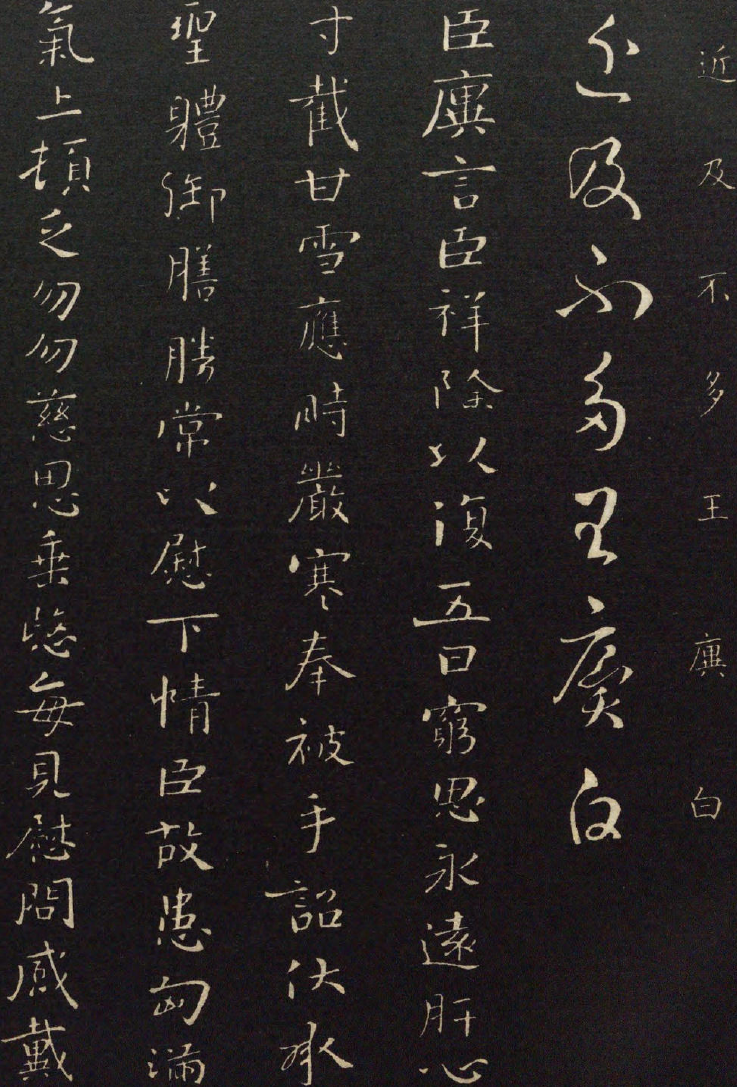 近及不多王廙白
近及不多王廙白
臣廙言臣祥除以復五日窮思永遠肝心
寸截甘雪應時嚴寒奉被手詔伏承
聖體御膳勝常以慰下情臣故患匈滿
氣上頓乏勿勿慈思垂愍每見慰問感戴